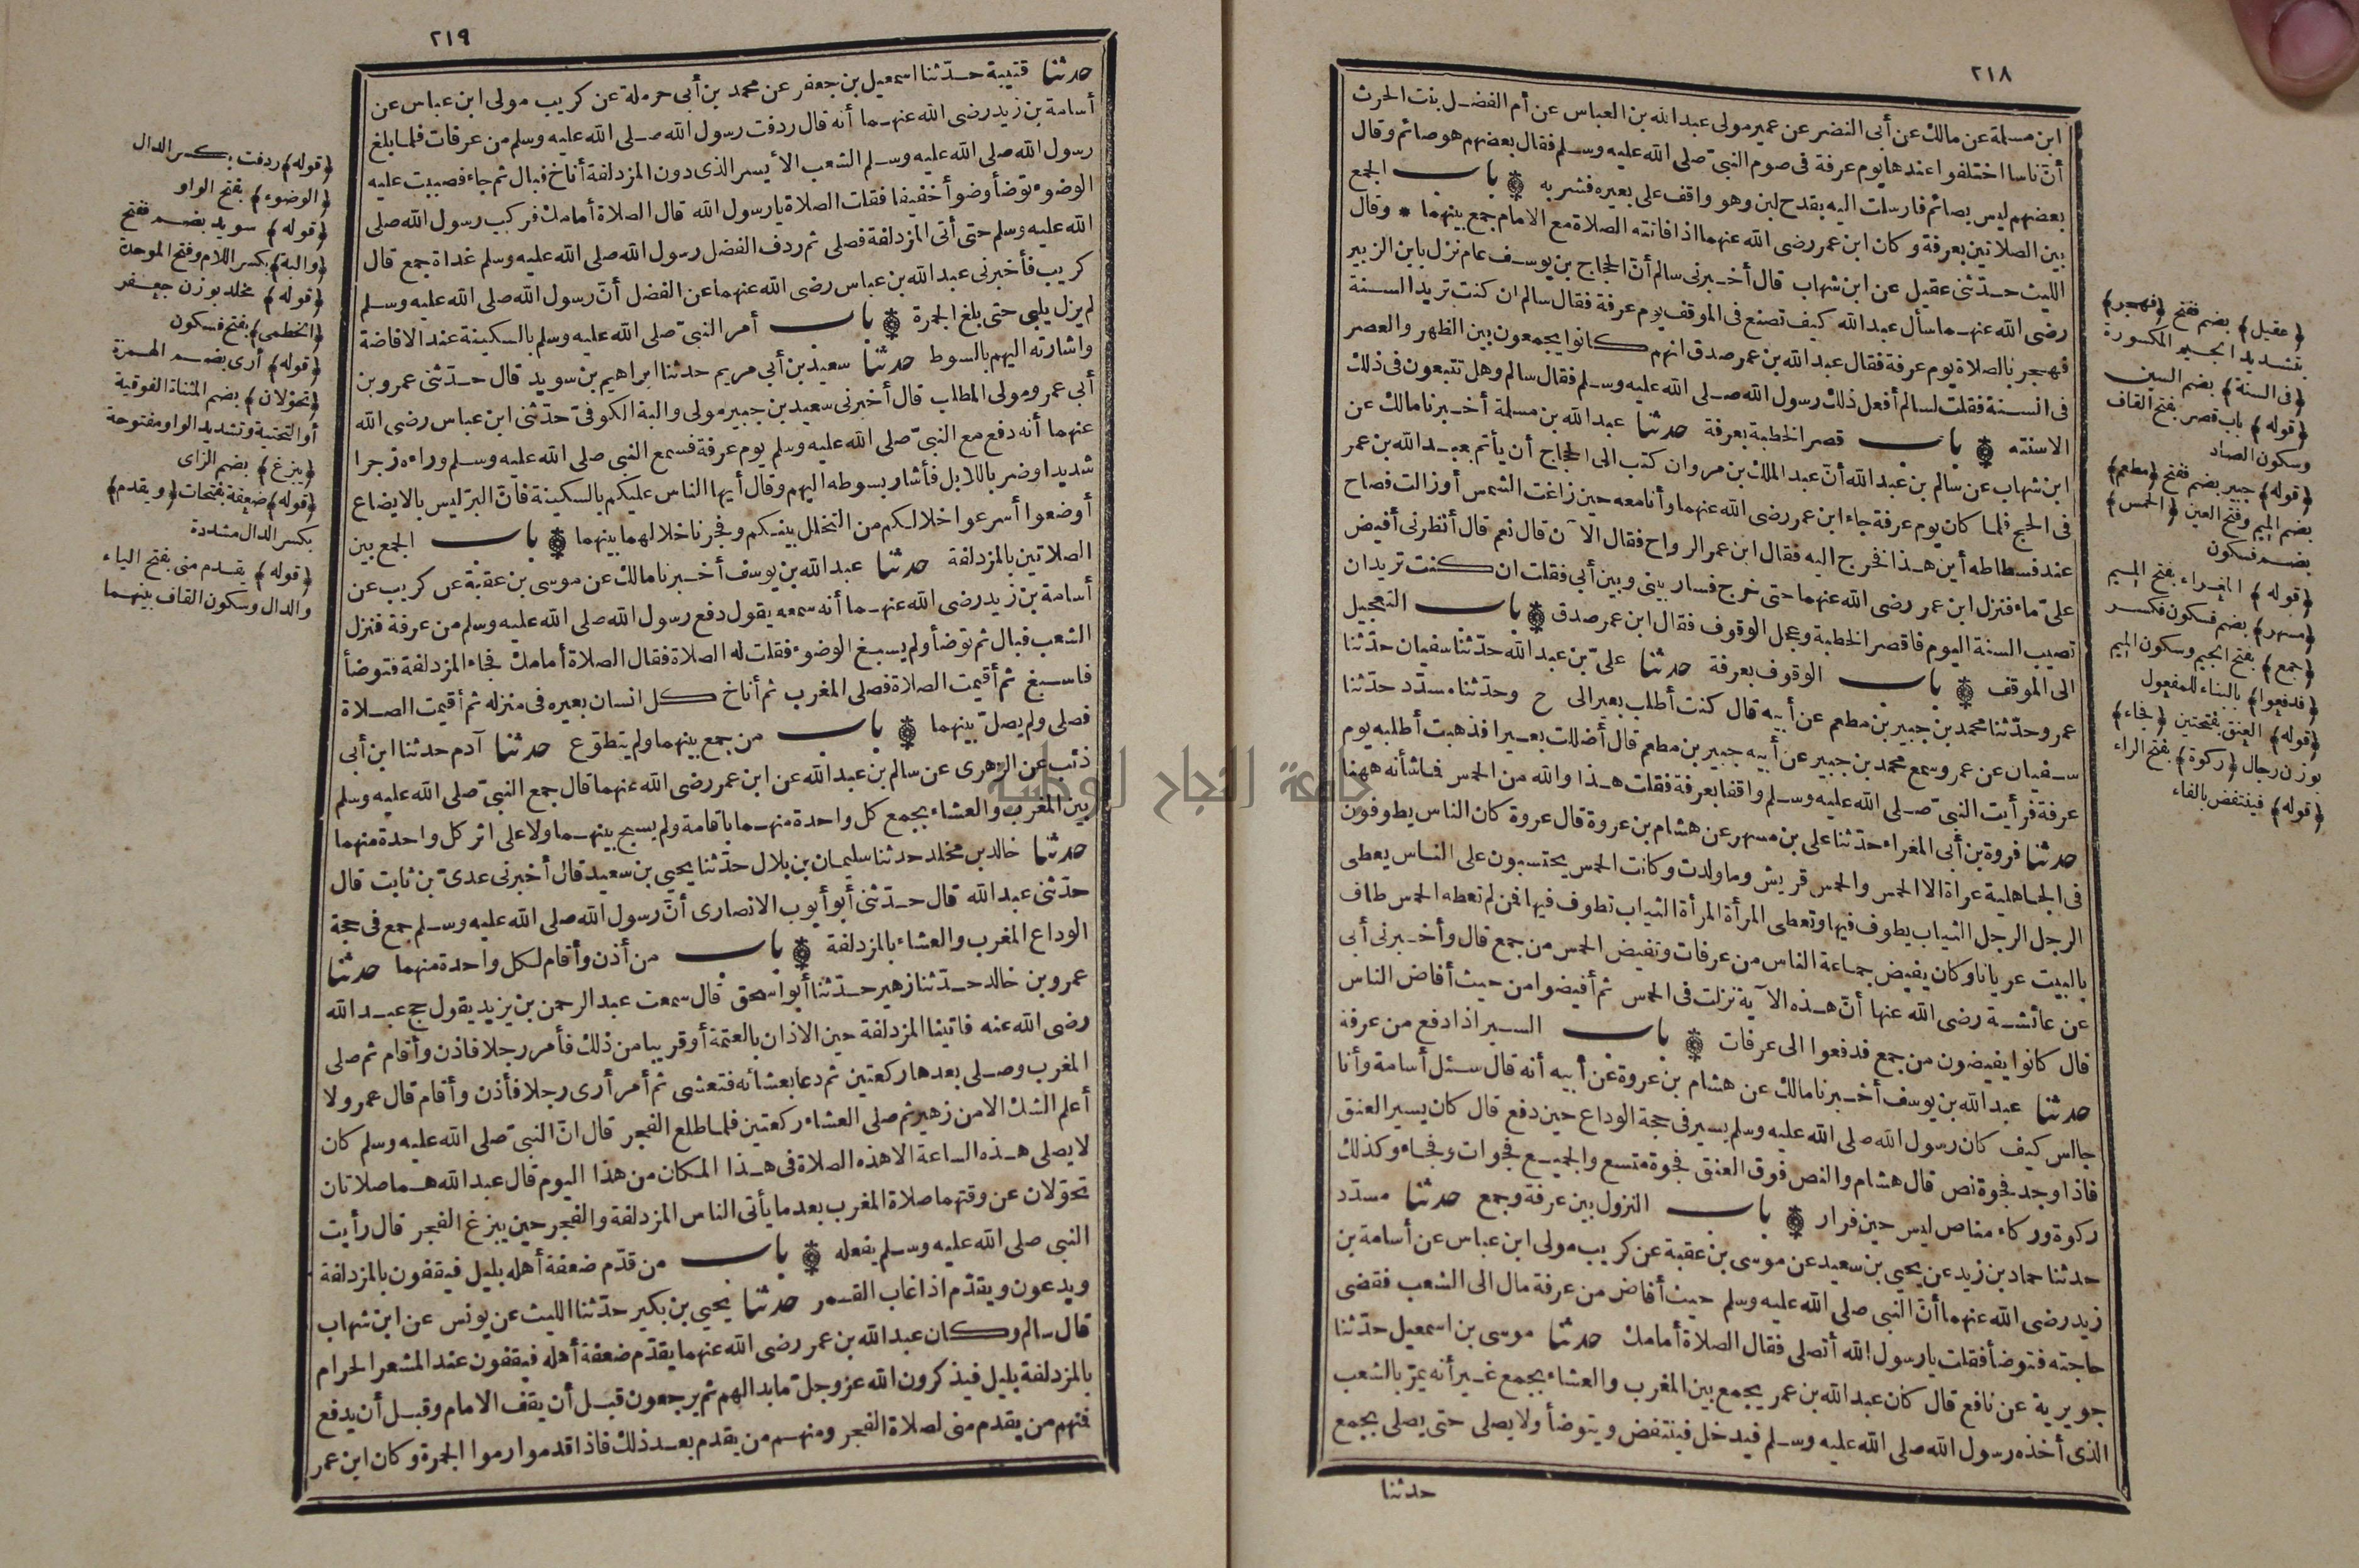 ٢١٨
ابن مسلمة عن مالك عن أبى النضر عن عمير مولى عبد الله بن العباس عن أم الفضل بنت الحرث
أن ناسا اختلفوا عندها يوم عرفة فى صوم النبى صلى الله عليه وسلم فقال بعضهم هو صائم وقال
بعضهم ليس بصائم فارسلت اليه بقدح لبن وهو واقف على بعيره فشربه باب الجمع
بين الصلاتين بعرفة وكان ابن عمر رضى الله عنهما اذا فاتته الصلاة مع الامام جمع بينهما * وقال
الليث حدثنى عقيل عن ابن شهاب قال أخبرنى سالم أن الحجاج بن يوسف عام نزل بابن الزبير
رضى الله عنهما سأل عبد الله كيف تصنع فى الموقف يوم عرفة فقال سالم ان كنت تريد السنة
فهجر بالصلاة يوم عرفة فقال عبد الله بن عمر صدق انهم كانوا يجمعون بين الظهر والعصر
فى السنة فقلت لسالم أفعل ذلك رسول الله صلى الله عليه وسلم فقال سالم وهل تتبعون فى ذلك
الا سنته باب قصر الخطبة بعرفة حدثنا عبد الله بن مسلمة أخبرنا مالك عن
ابن شهاب عن سالم بن عبد الله أن عبد الملك بن مروان كتب الى الحجاج أن يأتم بعبد الله بن عمر
فى الحج فلما كان يوم عرفة جاء ابن عمر رضى الله عنهما وأنا معه حين زاغت الشمس أو زالت فصاح
عند فسطاطه أين هذا فخرج اليه فقال ابن عمر الرواح فقال الآن قال نعم قال أنظرنى أفيض
على ماء فنزل ابن عمر رضى الله عنهما حتى خرج فسار بينى وبين أبى فقلت ان كنت تريد ان
تصيب السنة اليوم فاقصر الخطبة وعجل الوقوف فقال ابن عمر صدق باب التعجيل
الى الموقف باب الوقوف بعرفة حدثنا على بن عبد الله حدثنا سفيان حدثنا
عمرو حدثنا محمد بن جبير بن مطعم عن أبيه قال كنت أطلب بعيرا لى ح وحدثنا مسدد حدثنا
سفيان عن عمرو سمع محمد بن جبير عن أبيه جبير بن مطعم قال أضللت بعيرا فذهبت أطلبه يوم
عرفة فرأيت النبى صلى الله عليه وسلم واقفا بعرفة فقلت هذا والله من الحمس فماشأنه ههنا
حدثنا فروة بن أبى المغراء حدثنا على بن مسهر عن هشام بن عروة قال عروة كان الناس يطوفون
فى الجاهلية عراة الا الحمس والحمس قريش وما ولدت وكانت الحمس يحتسبون على الناس يعطى
الرجل الرجل الثياب يطوف فيها وتعطى المرأة المرأة الثياب تطوف فيها فمن لم تعطه الحمس طاف
بالبيت عريانا وكان يفيض جماعة الناس من عرفات وتفيض الحمس من جمع قال وأخبرنى أبى
عن عائشة رضى الله عنها أن هذه الآية نزلت فى الحمس ثم أفيضوا من حيث أفاض الناس
قال كانوا يفيضون من جمع فدفعوا الى عرفات باب السير اذا دفع من عرفة
حدثنا عبد الله بن يوسف أخبرنا مالك عن هشام بن عروة عن أبيه أنه قال سئل أسامة وأنا
جالس كيف كان رسول الله صلى الله عليه وسلم يسير فى حجة الوداع حين دفع قال كان يسير العنق
فاذا وجد فجوة نص قال هشام والنص فوق العنق فجوة متسع والجميع فجوات وفجاء وكذلك
ركوة وركاء مناص ليس حين فرار باب النزول بين عرفة وجمع حدثنا مسدد
حدثنا حماد بن زيد عن يحيى بن سعيد عن موسى بن عقبة عن كريب مولى ابن عباس عن أسامة بن
زيد رضى الله عنهما أن النبى صلى الله عليه وسلم حيث أفاض من عرفة مال الى الشعب فقضى
حاجته فتوضأ فقلت يا رسول الله أتصلى فقال الصلاة أمامك حدثنا موسى بن اسمعيل حدثنا
جويرية عن نافع قال كان عبد الله بن عمر يجمع بين المغرب والعشاء بجمع غير أنه يمر بالشعب
الذى أخذه رسول الله صلى الله عليه وسلم فيدخل فينتفض ويتوضأ ولا يصلى حتى يصلى بجمع
حدثنا
(عقيل) بضم ففتح (فهجر)
بتشديد الجيم المكسورة
(فى السنة) بضم السين
(قوله) باب قصر بفتح القاف
وسكون الصاد
(قوله) جبير بضم ففتح (مطعم)
بضم الميم وفتح العين (الحمس)
بضم فسكون
(قوله) المغراء بفتح الميم
(مسهر) بضم فسكون فكسر
(جمع) بفتح الجيم وسكون الميم
(فدفعوا) بالبناء للمفعول
(قوله) العنق بفتحتين (فجاء)
بوزن رجال (ركوة) بفتح الراء
(قوله) فينتفض بالفاء
٢١٩
حدثنا قتيبة حدثنا اسمعيل بن جعفر عن محمد بن أبى حرملة عن كريب مولى ابن عباس عن
أسامة بن زيد رضى الله عنهما أنه قال ردفت رسول الله صلى الله عليه وسلم من عرفات فلما بلغ
رسول الله صلى الله عليه وسلم الشعب الأيسر الذى دون المزدلفة أناخ فبال ثم جاء فصببت عليه
الوضوء توضأ وضوأ خفيفا فقلت الصلاة يا رسول الله قال الصلاة أمامك فركب رسول الله صلى
الله عليه وسلم حتى أتى المزدلفة فصلى ثم ردف الفضل رسول الله صلى الله عليه وسلم غداة جمع قال
كريب فأخبرنى عبد الله بن عباس رضى الله عنهما عن الفضل أن رسول الله صلى الله عليه وسلم
لم يزل يلبى حتى بلغ الجمرة باب أمر النبى صلى الله عليه وسلم بالسكينة عند الافاضة
واشارته اليهم بالسوط حدثنا سعيد بن أبى مريم حدثنا ابراهيم بن سويد قال حدثنى عمرو بن
أبى عمرو مولى المطلب قال أخبرنى سعيد بن جبير مولى والبة الكوفى حدثنى ابن عباس رضى الله
عنهما أنه دفع مع النبى صلى الله عليه وسلم يوم عرفة فسمع النبى صلى الله عليه وسلم وراءه زجرا
شديدا وضربا للابل فأشار بسوطه اليهم وقال أيها الناس عليكم بالسكينة فان البر ليس بالايضاع
أوضعوا أسرعوا خلالكم من التخلل بينكم وفجرنا خلالهما بينهما باب الجمع بين
الصلاتين بالمزدلفة حدثنا عبد الله بن يوسف أخبرنا مالك عن موسى بن عقبة عن كريب عن
أسامة بن زيد رضى الله عنهما أنه سمعه يقول دفع رسول الله صلى الله عليه وسلم من عرفة فنزل
الشعب فبال ثم توضأ ولم يسبغ الوضوء فقلت له الصلاة فقال الصلاة أمامك فجاء المزدلفة فتوضأ
فاسبغ ثم أقيمت الصلاة فصلى المغرب ثم أناخ كل انسان بعيره فى منزله ثم أقيمت الصلاة
فصلى ولم يصل بينهما باب من جمع بينهما ولم يتطوع حدثنا آدم حدثنا ابن أبى
ذئب عن الزهرى عن سالم بن عبد الله عن ابن عمر رضى الله عنهما قال جمع النبى صلى الله عليه وسلم
بين المغرب والعشاء بجمع كل واحدة منهما باقامة ولم يسبح بينهما ولا على اثر كل واحدة منهما
حدثنا خالد بن مخلد حدثنا سليمان بن بلال حدثنا يحيى بن سعيد قال أخبرنى عدى بن ثابت قال
حدثنى عبد الله قال حدثنى أبو أيوب الانصارى أن رسول الله صلى الله عليه وسلم جمع فى حجة
الوداع المغرب والعشاء بالمزدلفة باب من أذن وأقام لكل واحدة منهما حدثنا
عمرو بن خالد حدثنا زهير حدثنا أبو اسحق قال سمعت عبد الرحمن بن يزيد يقول حج عبد الله
رضى الله عنه فاتينا المزدلفة حين الاذان بالعتمة أو قريبا من ذلك فأمر رجلا فاذن وأقام ثم صلى
المغرب وصلى بعدها ركعتين ثم دعا بعشائه فتعشى ثم أمر أرى رجلا فأذن وأقام قال عمرو ولا
أعلم الشك الا من زهير ثم صلى العشاء ركعتين فلما طلع الفجر قال ان النبى صلى الله عليه وسلم كان
لا يصلى هذه الساعة الا هذه الصلاة فى هذا المكان من هذا اليوم قال عبد الله هما صلاتان
تحولان عن وقتهما صلاة المغرب بعد ما يأتى الناس المزدلفة والفجر حين يبزغ الفجر قال رأيت
النبى صلى الله عليه وسلم يفعله باب من قدم ضعفة أهله بليل فيقفون بالمزدلفة
ويدعون ويقدم اذا غاب القمر حدثنا يحيى بن بكير حدثنا الليث عن يونس عن ابن شهاب
قال سالم وكان عبد الله بن عمر رضى الله عنهما يقدم ضعفة أهله فيقفون عند المشعر الحرام
بالمزدلفة بليل فيذكرون الله عز وجل ما بدا لهم ثم يرجعون قبل أن يقف الامام وقبل أن يدفع
فمنهم من يقدم منى لصلاة الفجر ومنهم من يقدم بعد ذلك فاذا قدموا رموا الجمرة وكان ابن عمر
(قوله) ردفت بكسر الدال
(الوضوء) بفتح الواو
(قوله) سويد بضم ففتح
(والبة) بكسر اللام وفتح الموحدة
(قوله) مخلد بوزن جعفر
(الخطمى) بفتح فسكون
(قوله) أرى بضم الهمزة
(تحولان) بضم المثناة الفوقية
أو التحتية وتشديد الواو مفتوحة
(يبزغ) بضم الزاى
(قوله) ضعفة بفتحات (ويقدم)
بكسر الدال مشددة
(قوله) يقدم منى بفتح الياء
والدال وسكون القاف بينهما
جامعة النجاح الوطنية